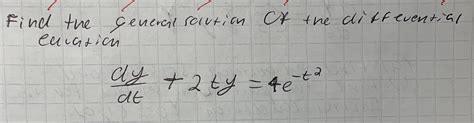 Find the general solution Of the differential
equation
dy/dt + 2ty = 4e^{-t^2}